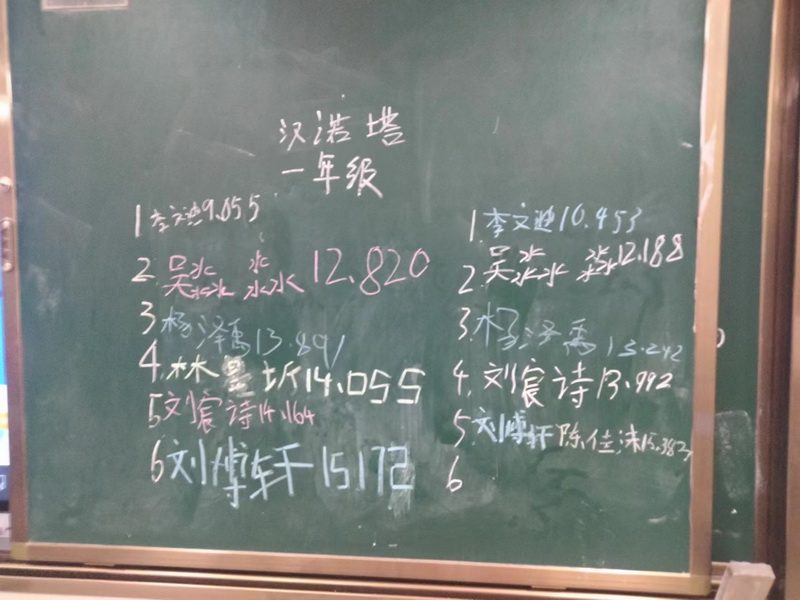 汉诺塔
一年级
1 李文迪9.055
2 吴淼淼 12.820
3 杨泽禹13.891
4. 林墨圻14.055
5 刘宸诗14.164
6 刘博轩15.172
1. 李文迪10.453
2. 吴淼淼12.188
3. 杨泽禹13.242
4. 刘宸诗13.992
5. 刘博轩 陈佳沫15.383
6